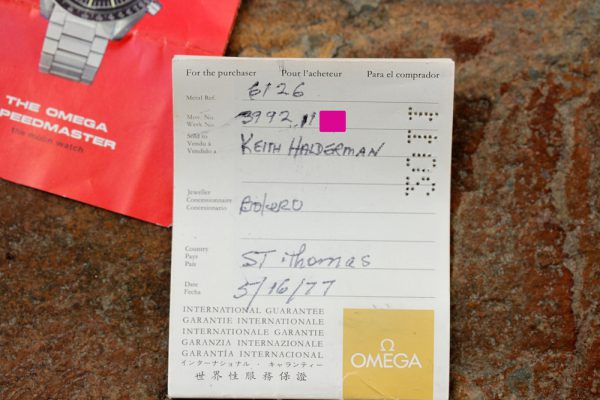 THE OMEGA
SPEEDMASTER
the moon watch
For the purchaser Pour l'acheteur Para el comprador
Metal Ref. 6126
Mov. No. 3992
Werk No.
Sold to KEITH HALDERMAN
Vendu à
Vendido a
Jeweller
Concessionnaire
Concesionario
Country ST thomas
Pays
País
Date 5/16/77
Fecha
INTERNATIONAL GUARANTEE
GARANTIE INTERNATIONALE
INTERNATIONALE GARANTIE
GARANZIA INTERNAZIONALE
GARANTÍA INTERNACIONAL
インターナショナル・ギャランティー
世界性服務保證
Ω
OMEGA